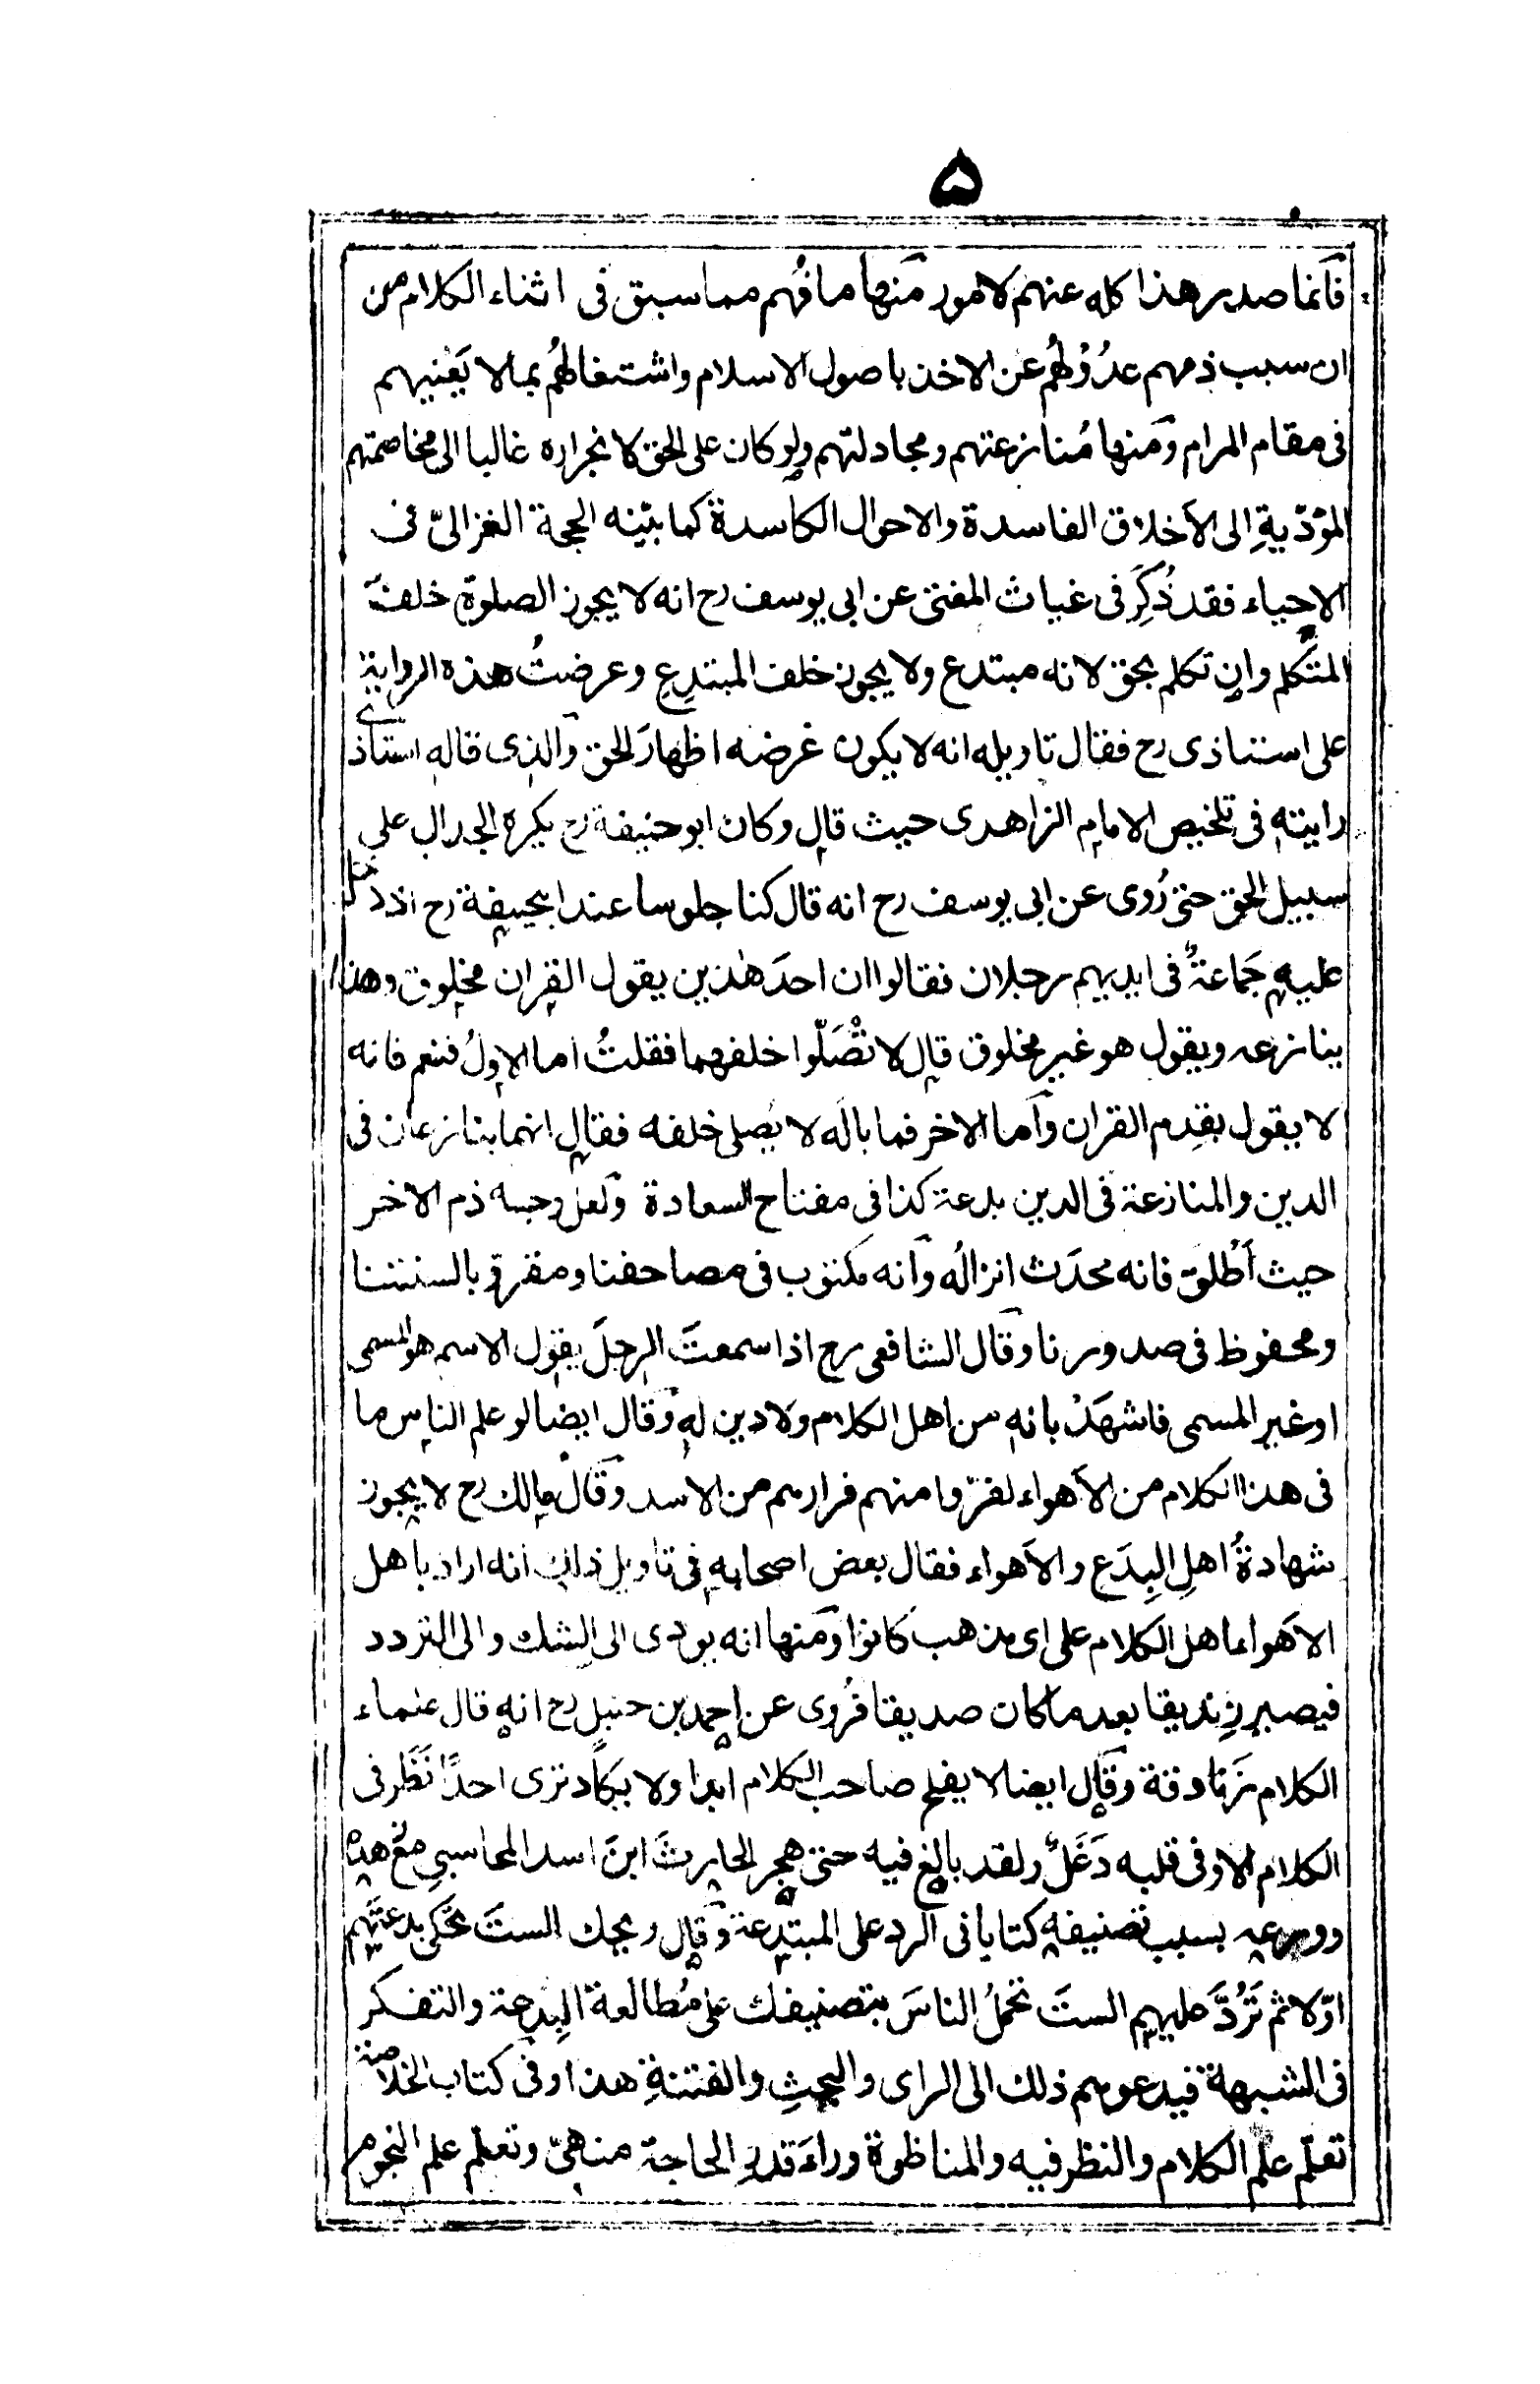 ۵
فانما صدر هذا كله عنهم لامور منها ما فُهم مما سبق فى اثناء الكلام من
ان سبب ذمهم عدُوْلُهُم عن الاخذ باصول الاسلام واشتغالهُم بما لا يَعْنيهم
فى مقام المرام ومنها مُنازعتهم ومجادلتهم ولو كان على الحق لانجراره غالبا الى مخاصمتهم
المؤدّيةِ الى الأخلاق الفاسدة والاحوال الكاسدة كما بيّنه الحجة الغزالىّ فى
الاحياء فقد ذُكِرَ فى غياث المفتى عن ابى يوسف رح انه لا يجوز الصلوة خلف
المتكلم وان تكلم بحق لانه مبتدع ولا يجوز خلف المبتدِعِ وعرضتُ هذه الرواية
على استاذى رح فقال تاويله انه لا يكون غرضه اظهارَ الحق والذى قاله استاذى
رايته فى تلخيص الامام الزاهدى حيث قال وكان ابو حنيفة رح يكره الجدال على
سبيل الحق حتى رُوى عن ابى يوسف رح انه قال كنا جلوسا عند ابيحنيفة رح اذ دخل
عليه جَماعةٌ فى ايديهم رجلان فقالوا ان احدَ هٰذين يقول القران مخلوق وهذا
ينازعه ويقول هو غير مخلوق قال لا تُصَلّوا خلفهما فقلتُ اما الاولُ فنعم فانه
لا يقول بقِدم القران واما الاخر فما بالُه لا يُصلى خلفه فقال انهما يتنازعان فى
الدين والمنازعة فى الدين بدعة كذا فى مفتاح السعادة ولعل وجه ذم الاخر
حيث أَطلق فانه محدَث انزالُه وانه مكتوب فى مصاحفنا ومقرو بالسنتنا
ومحفوظ فى صدورنا وقال الشافعى رح اذا سمعتَ الرجلَ يقول الاسم هو المسمى
او غير المسمى فاشهَدْ بانه من اهل الكلام ولا دين له وقال ايضا لو علم الناس ما
فى هذا الكلام من الأهواء لفرّوا منهم فرارهم من الاسد وقال مالك رح لا يجوز
شهادةُ اهلِ البِدَع والأهواء فقال بعض اصحابه فى تاويل ذلك انه اراد باهل
الأهواء اهل الكلام على اى مذهب كانوا ومنها انه يودى الى الشك والى التردد
فيصير زنديقا بعد ما كان صديقا فرُوى عن احمد بن حنبل رح انه قال علماء
الكلام زَنَادقة وقال ايضا لا يفلح صاحب الكلام ابدا ولا يكاد ترى احدًا نَظَر فى
الكلام الا وفى قلبه دَغَلٌ ولقد بالغ فيه حتى هجر الحارثَ ابنَ اسد المحاسبى مع زهده
وورعه بسبب تصنيفه كتابا فى الرد على المبتدعة وقال ويحك الستَ تحكى بدعتهم
اوّلا ثم تَرُدّ عليهم الستَ تحملُ الناسَ بتصنيفك على مُطالعة البِدعة والتفكر
فى الشبهة فيدعوهم ذلك الى الراى والبحثِ والفتنةِ هذا وفى كتاب الخلاصة
تعلّم علم الكلام والنظر فيه والمناظرة وراءَ قدرِ الحاجة منهىّ وتعلم علم النجوم